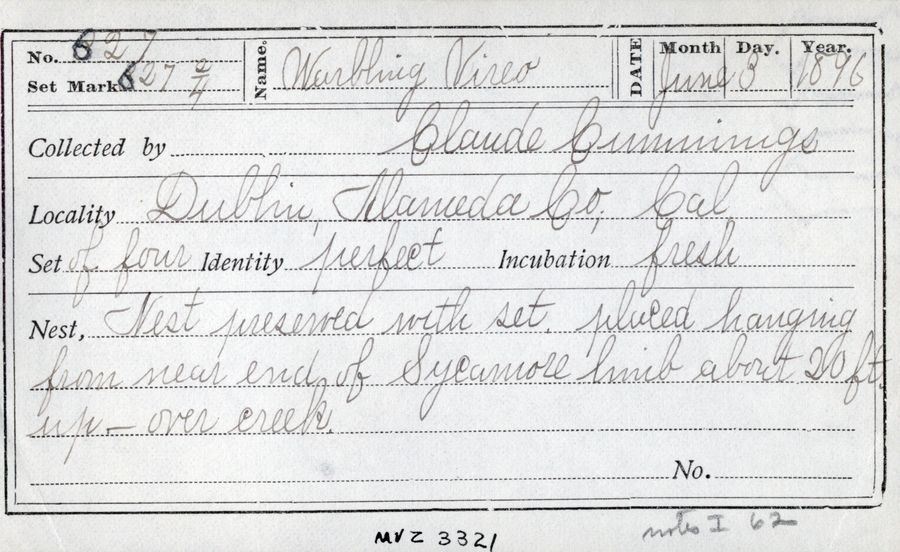 No. 627
Set Mark 627 2/4
Name. Warbling Vireo
DATE Month Day. Year.
June 3 1896
Collected by Claude Cummings
Locality Dublin, Alameda Co, Cal
Set of four Identity perfect Incubation fresh
Nest, Nest preserved with set. placed hanging
from near end of Sycamore limb about 20 ft.
up – over creek.
No.
MVZ 3321
notes I 62